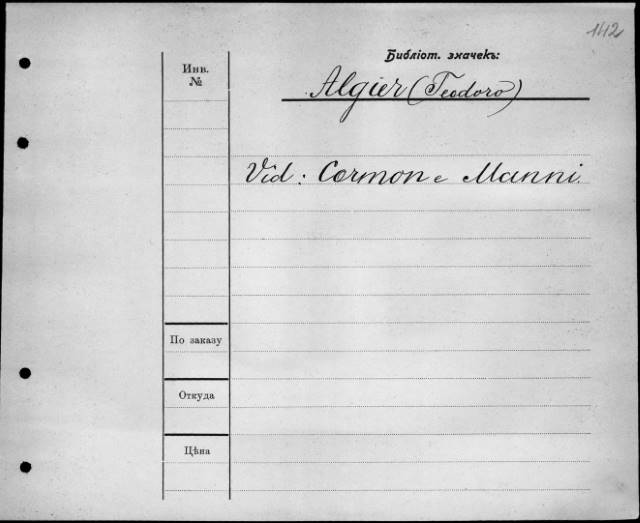 142
Библіот. значекъ:
Инв. №
Algier (Teodoro)
Vid: Cormon e Manni.
По заказу
Откуда
Цѣна